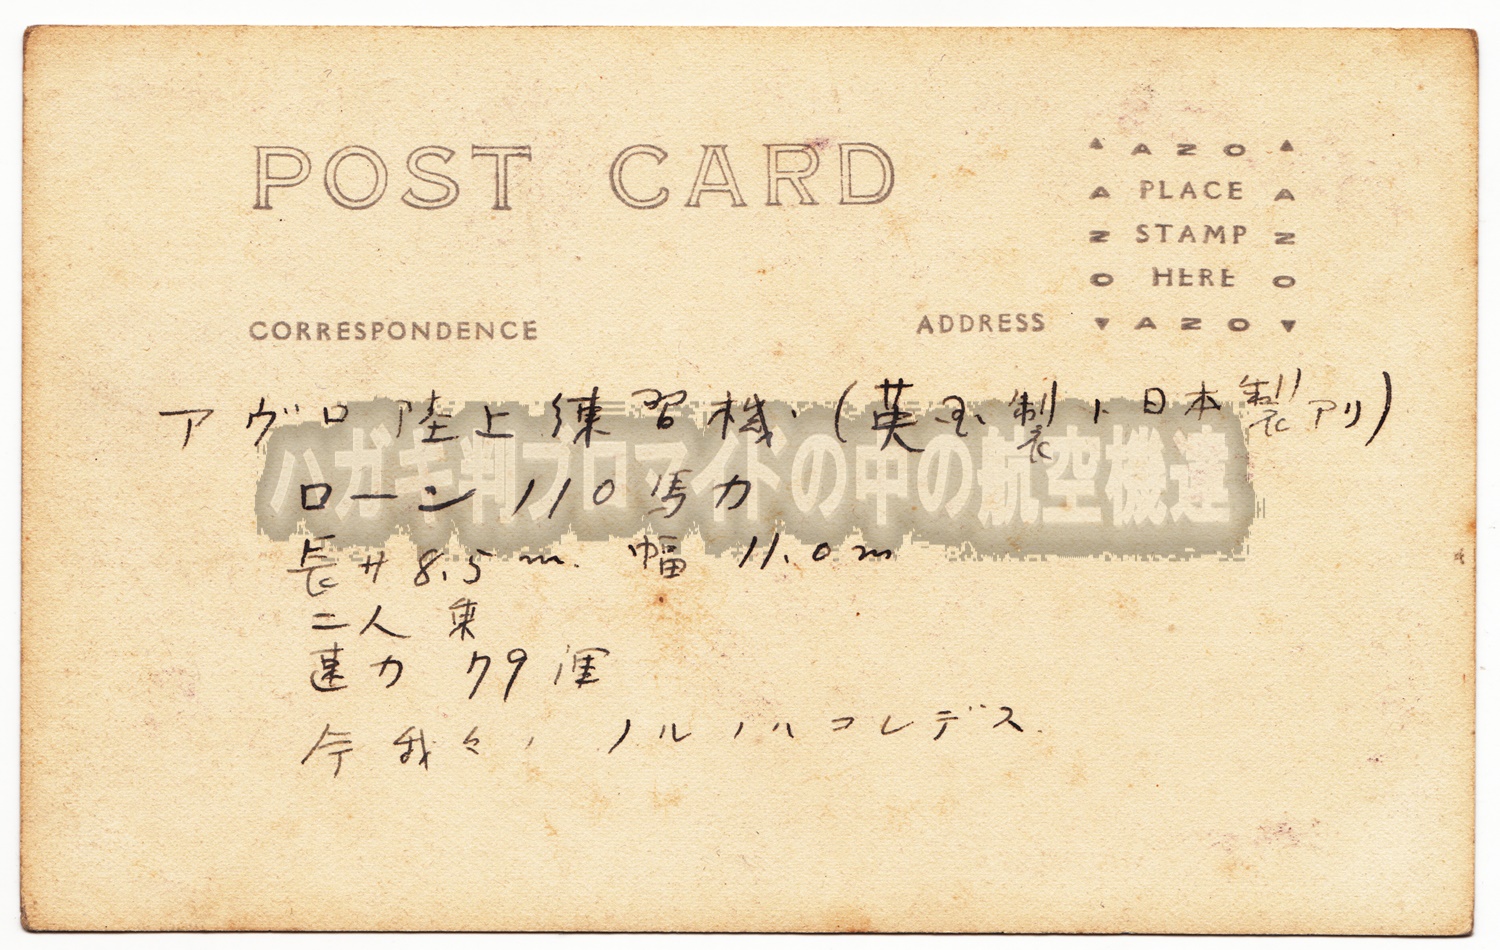 POST CARD
▲ AZO ▲
A PLACE A
Z STAMP Z
O HERE O
▼ AZO ▼
CORRESPONDENCE
ADDRESS
アヴロ陸上練習機.(英国製ト日本製アリ)
ハガキ判ブロマイドの中の航空機達
ローン 110馬力
長サ8.5m. 幅 11.0m
二人乗
速力 79浬
今我々ノ ノルノハコレデス.